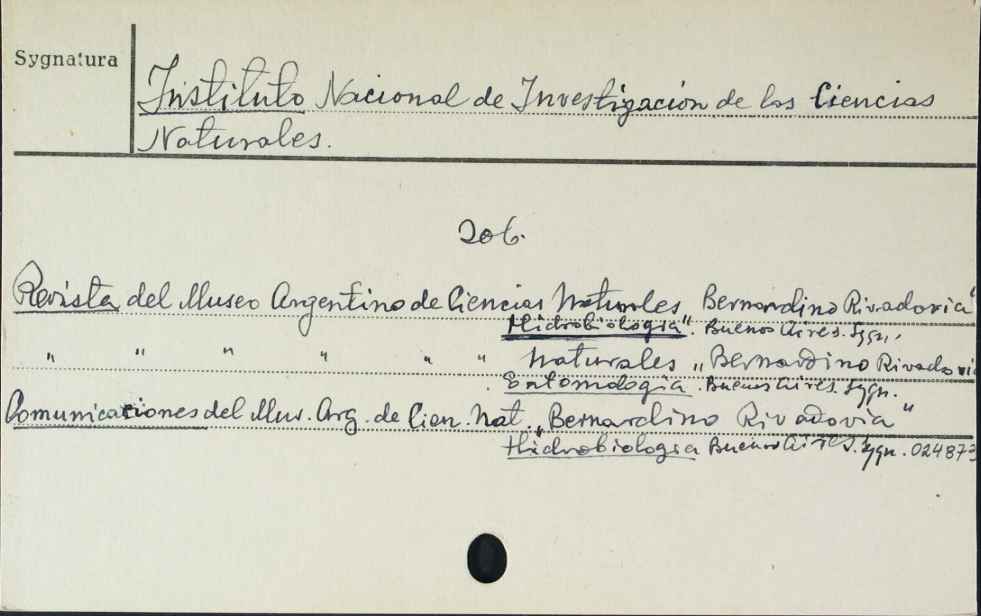 Sygnatura
Instituto Nacional de Investigacion de las Ciencias
Naturales.
206.
Revista del Museo Argentino de Ciencias Naturales „Bernardino Rivadovia"
Hidrobiologia". Buenos Aires. Sygn.
" " " " " " Naturales „Bernardino Rivadovi
Entomologia. Buenos Aires. Sygn.
Comunicaciones del Mus. Arg. de Cien. Nat. „Bernardino Rivadovia"
Hidrobiologia Buenos Aires. Sygn. 024873